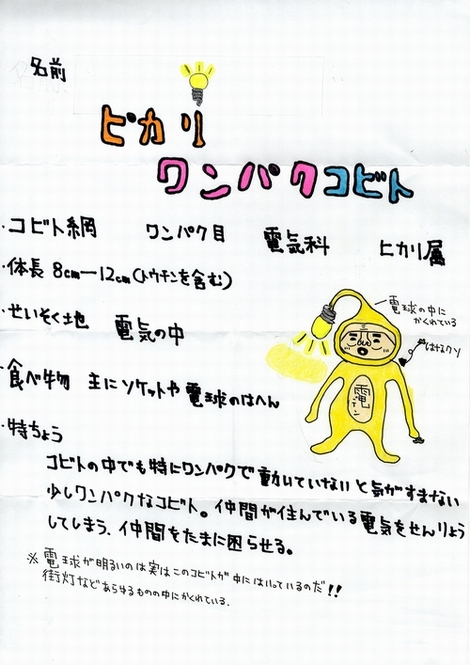 名前
ピカリ
ワンパクコビト
・コビト綱 ワンパク目 電気科 ヒカリ属
・体長 8cm―12cm(トウチンを含む)
・せいそく地 電気の中
電球の中に
かくれている
はなクソ
・食べ物 主にソケットや電球のはへん
電
デン
・特ちょう
コビトの中でも特にワンパクで動いていないと気がすまない
少しワンパクなコビト。仲間が住んでいる電気をせんりょう
してしまう、仲間をたまに困らせる。
※電球が明るいのは実はこのコビトが中にはいっているのだ!!
街灯などあらゆるものの中にかくれている.